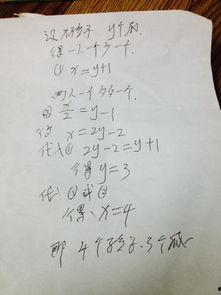 设x个孩子 y个瓜
得一人一个少一个.
① x=y+1
两人一个多一个.
② x/2=y-1
得 x=2y-2
代入① 2y-2=y+1
得 y=3
代入①或②
得: x=4
即 4个孩子.3个瓜